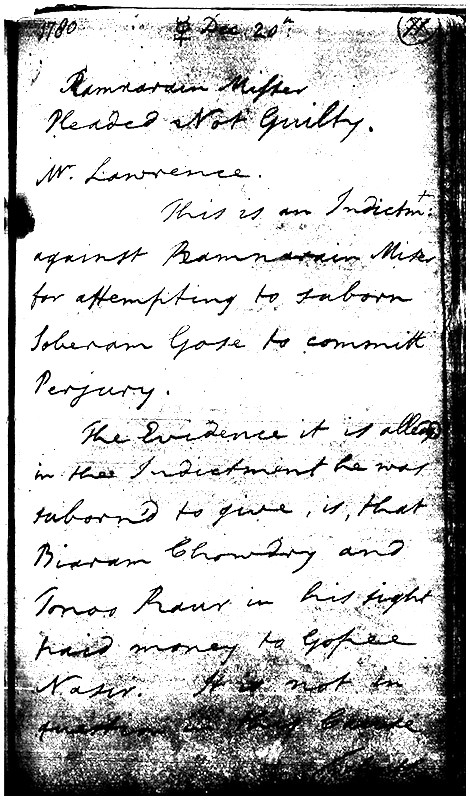 1780 ☿ Dec 20th.
Ramnarain Misser
Pleaded Not Guilty.
Mr. Lawrence.
This is an Indictmt.
against Ramnarain Misser
for attempting to suborn
Soberam Gose to committ
Perjury.
The Evidence it is alleged
in thee Indictment he was
suborn'd to give, is, that
Biaram Chowdry and
Tonoo Raur in his sight
paid money to Gopee
Nasir. It is not in
question in this Course